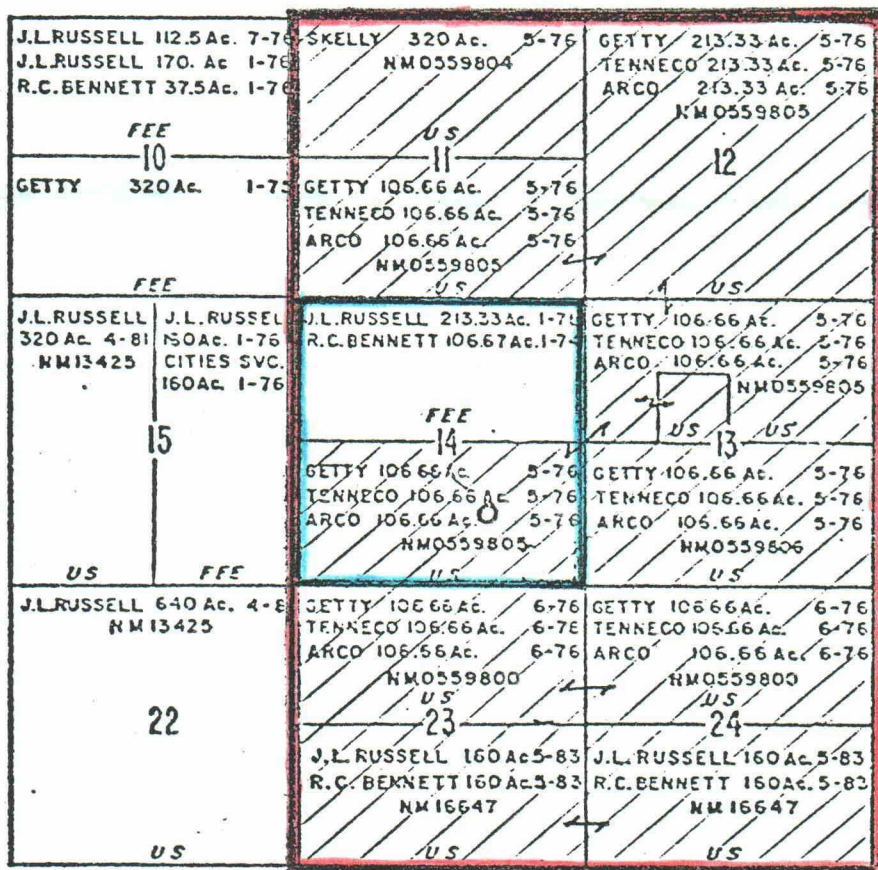 J.L.RUSSELL 112.5 Ac. 7-76
J.L.RUSSELL 170. Ac 1-76
R.C.BENNETT 37.5Ac. 1-76
FEE
10
GETTY 320 Ac. 1-75
FEE
SKELLY 320 Ac. 5-76
NM0559804
US
11
GETTY 106.66 Ac. 5-76
TENNECO 106.66 Ac. 5-76
ARCO 106.66 Ac. 5-76
NM0559805
US
GETTY 213.33 Ac. 5-76
TENNECO 213.33 Ac. 5-76
ARCO 213.33 Ac. 5-76
NM0559805
12
US
J.L.RUSSELL
320 Ac. 4-81
NM13425
15
US
J.L.RUSSEL
160Ac. 1-76
CITIES SVC.
160Ac. 1-76
FEE
J.L.RUSSELL 213.33Ac.
R.C.BENNETT 106.67Ac.
FEE
14
GETTY 106.66 Ac. 5-76
TENNECO 106.66 Ac. 5-76
ARCO 106.66 Ac. 5-76
NM0559805
US
GETTY 106.66 Ac. 5-76
TENNECO 106.66 Ac. 5-76
ARCO 106.66 Ac. 5-76
NM0559805
US
13
US
GETTY 106.66 Ac. 5-76
TENNECO 106.66 Ac. 5-76
ARCO 106.66 Ac. 5-76
NM0559806
US
J.L.RUSSELL 640 Ac. 4-8
NM13425
22
US
GETTY 106.66 Ac. 6-76
TENNECO 106.66 Ac. 6-76
ARCO 106.66 Ac. 6-76
NM0559800
US
23
J.L. RUSSELL 160 Ac 5-83
R.C. BENNETT 160 Ac. 5-83
NM16647
US
GETTY 106.66 Ac. 6-76
TENNECO 106.66 Ac. 6-76
ARCO 106.66 Ac. 6-76
NM0559800
US
24
J.L. RUSSELL 160 Ac. 5-83
R.C. BENNETT 160 Ac. 5-83
NM16647
US